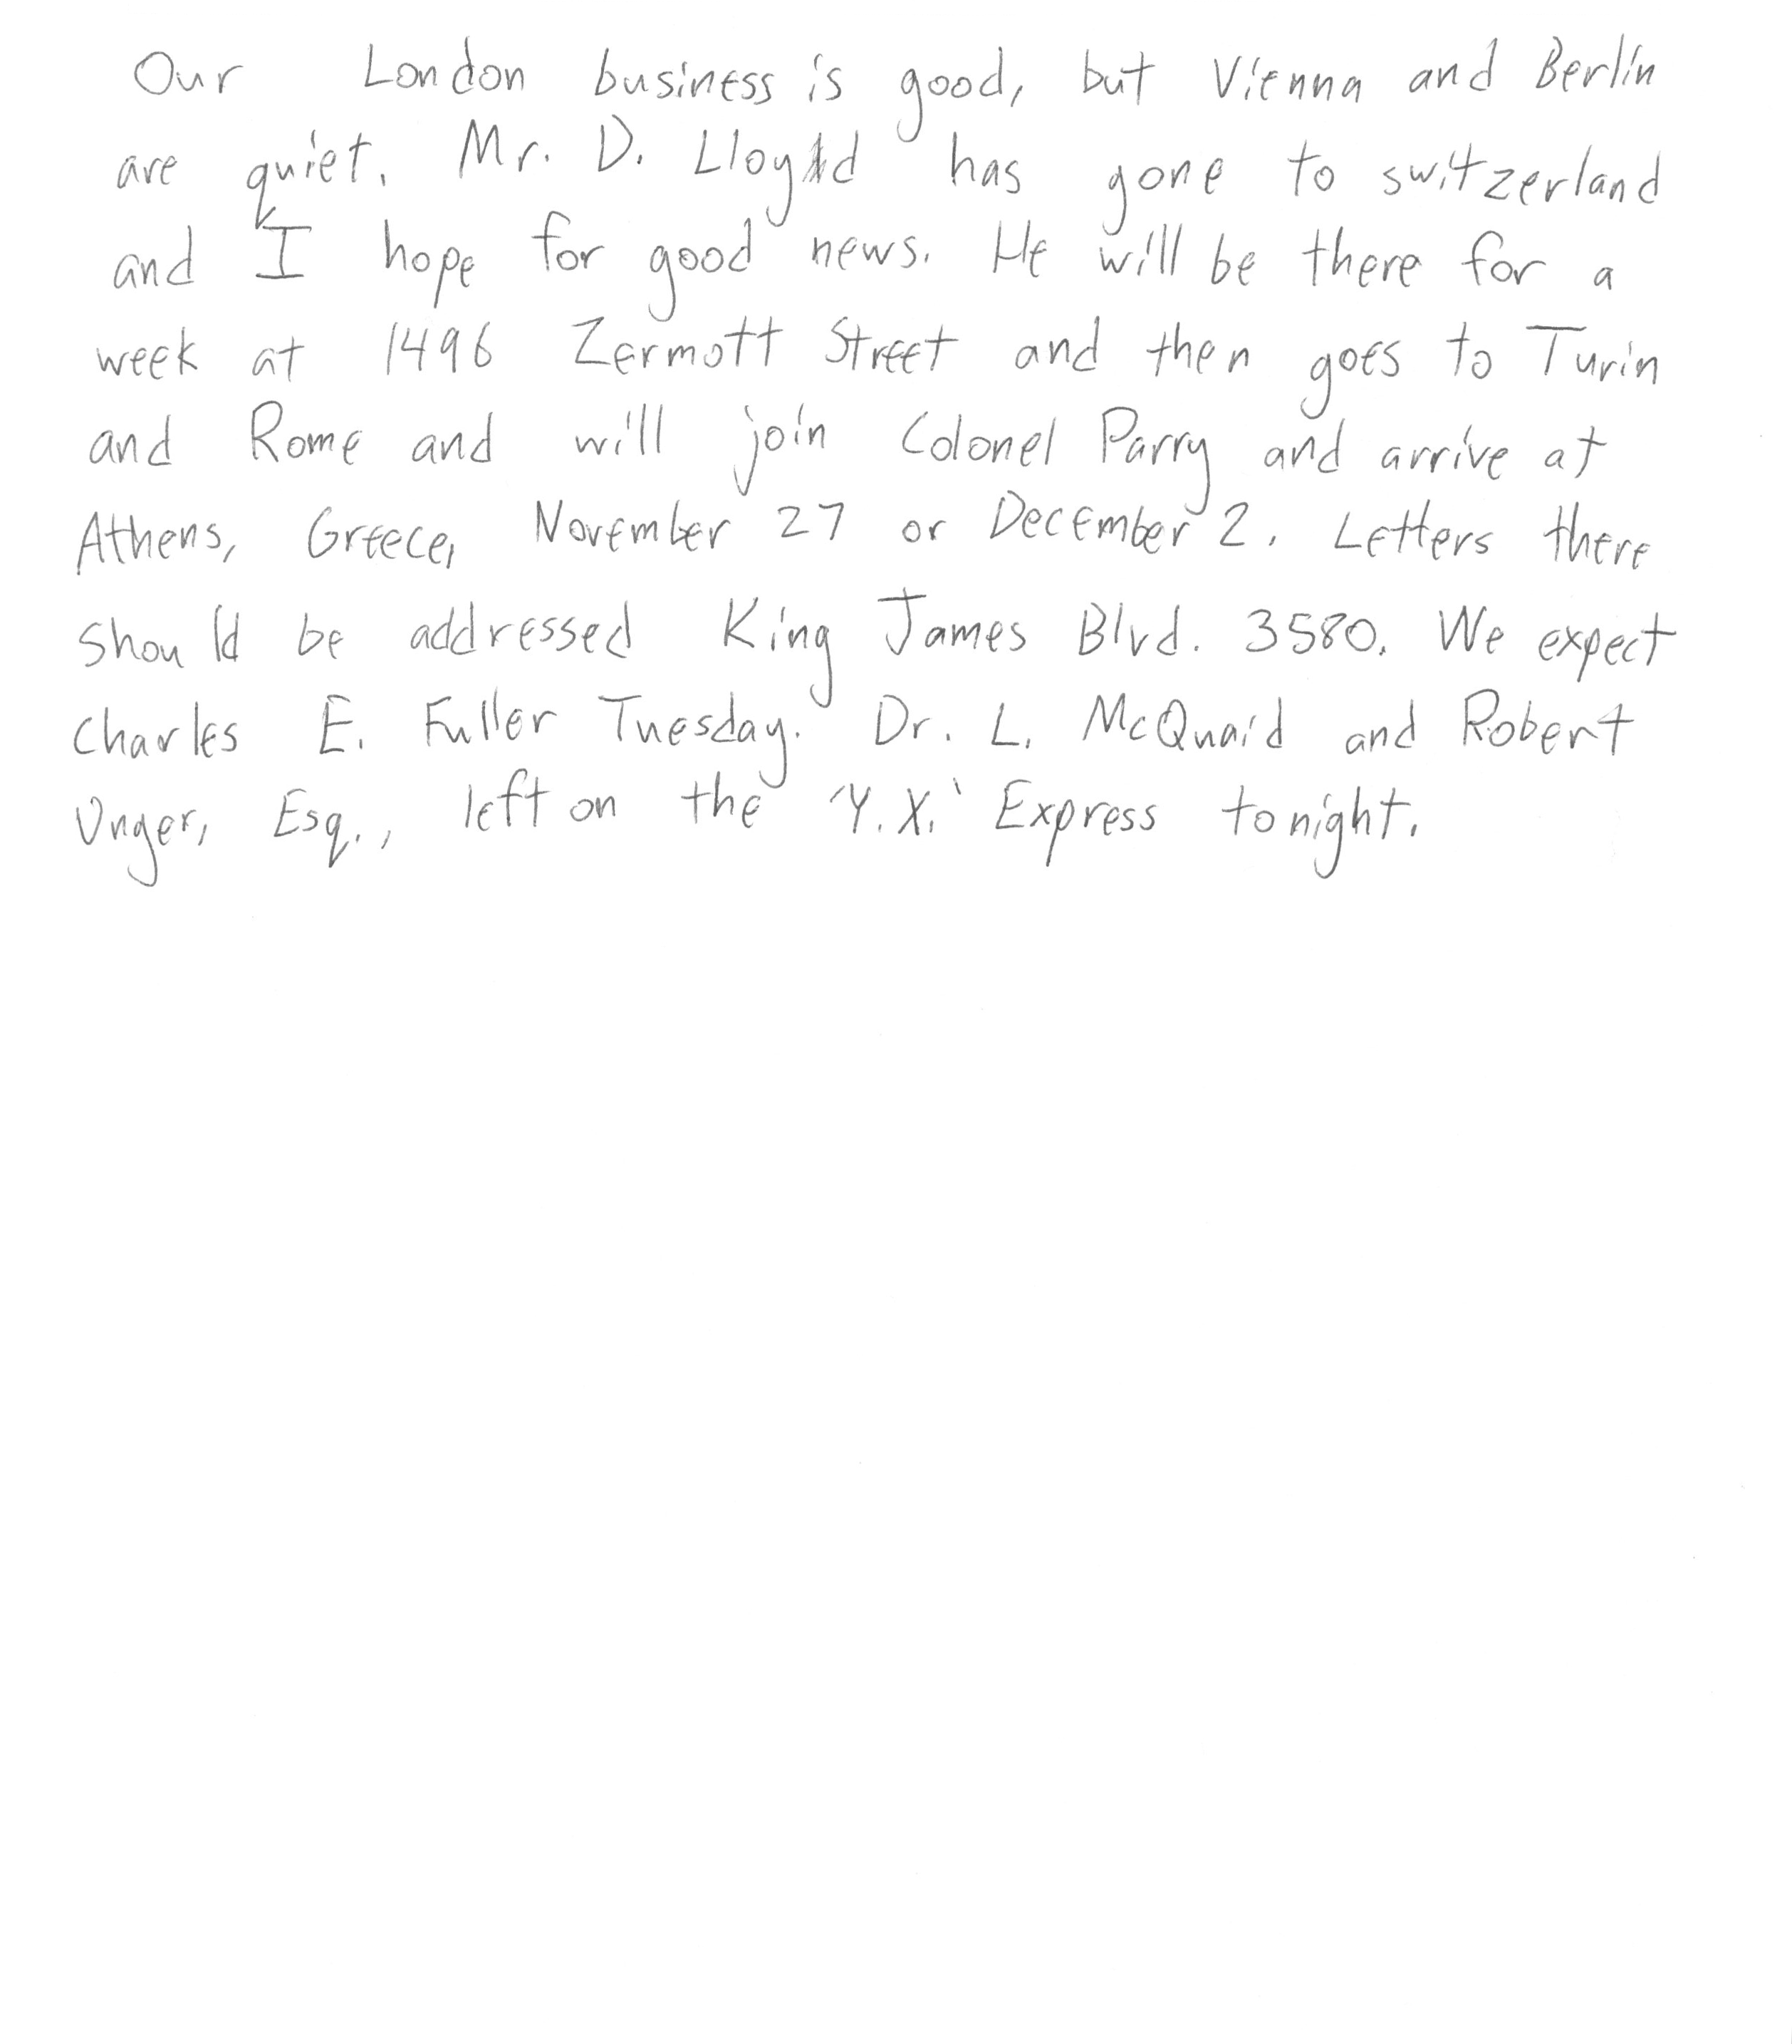 Our London business is good, but Vienna and Berlin
are quiet. Mr. D. Lloyd has gone to switzerland
and I hope for good news. He will be there for a
week at 1496 Zermott Street and then goes to Turin
and Rome and will join Colonel Parry and arrive at
Athens, Greece, November 27 or December 2. Letters there
should be addressed King James Blvd. 3580. We expect
Charles E. Fuller Tuesday. Dr. L. McQuaid and Robert
Unger, Esq., left on the 'Y.X.' Express tonight.